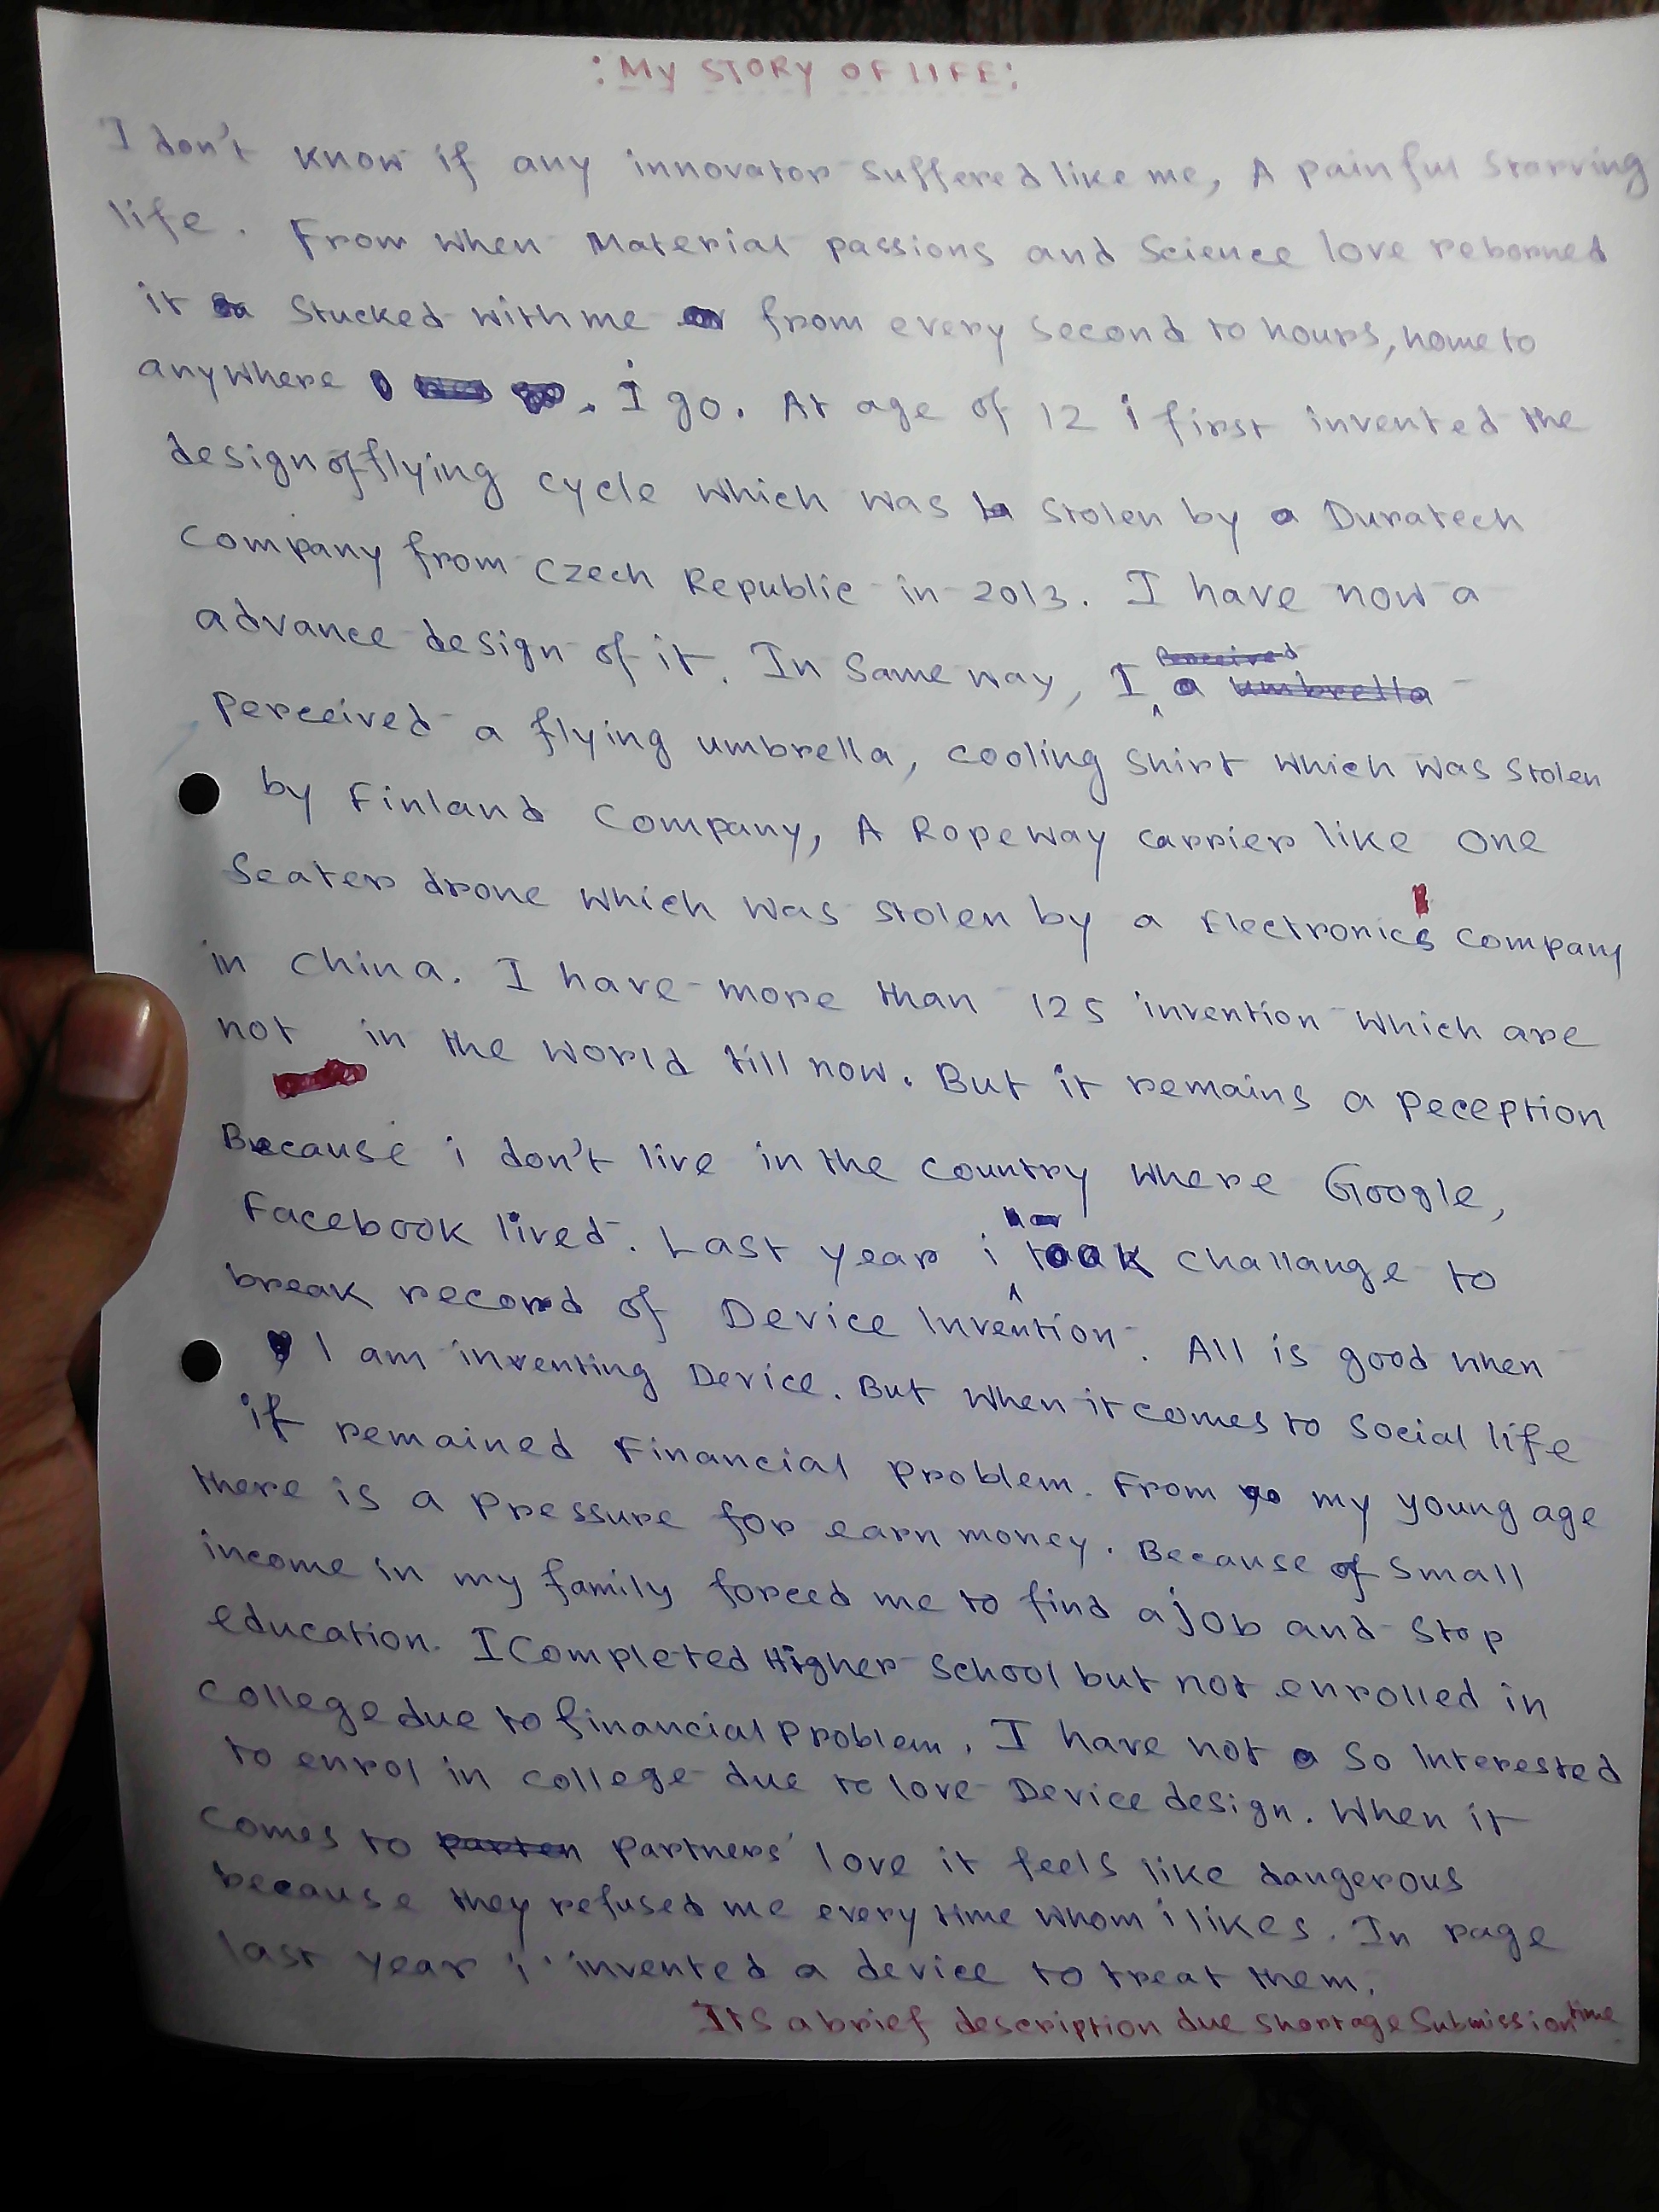 : My STORY OF LIFE :
I don't know if any innovator suffered like me, A painful starving
life. From when Material passions and Science love reborned
it stucked with me from every second to hours, home to
anywhere, I go. At age of 12 i first invented the
design of flying cycle which was stolen by a Duratech
Company from Czech Republic in 2013. I have now a
advance design of it. In same way, I
perceived a flying umbrella, cooling shirt which was stolen
by Finland Company, A Ropeway carrier like one
seater drone which was stolen by a Electronics company
in China. I have more than 125 invention which are
not in the world till now. But it remains a peception
Because i don't live in the country where Google,
Facebook lived. Last year i took challange to
break record of Device Invention. All is good when
I am inventing Device. But when it comes to social life
if remained Financial problem. From my young age
there is a pressure for earn money. Because of small
income in my family forced me to find a job and stop
education. I Completed Higher School but not enrolled in
college due to financial problem. I have not a so interested
to enrol in college due to love Device design. When it
comes to partners' love it feels like dangerous
because they refused me every time whom i likes. In page
last year i invented a device to treat them.
Its a brief description due shortage submission time